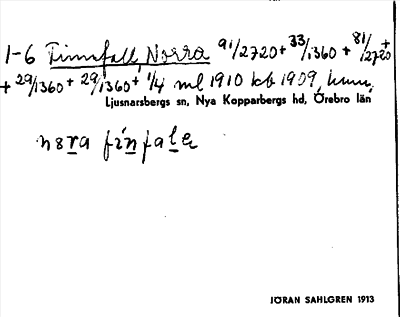 1-6 Finnfall, Norra 91/2720 + 33/1360 + 81/2720 +
+ 29/1360 + 29/1360 + 1/4 ml 1910 kb 1909, hmn,
Ljusnarsbergs sn, Nya Kopparbergs hd, Örebro län
nora finfala
JÖRAN SAHLGREN 1913